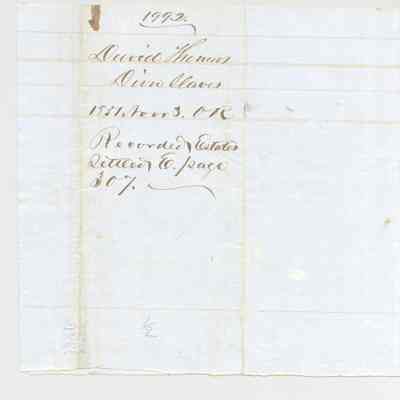 1992.
David Thomas
Divn Slaves
1851. Nov 3. O R
Recorded Estates
Settled E. page
307.